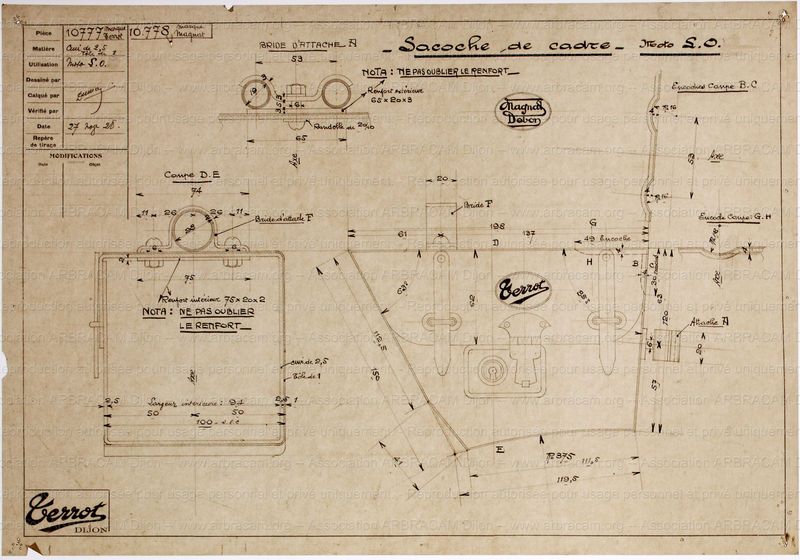 Pièce
10777 marque Terrot
10.778 marque Magnat
Matière
Cuir de 2,5
Tôle de 1
Utilisation
Moto S.O.
Dessiné par
Calqué par
Vérifié par
Date
27 Nov 28.
Repère
de tirage
MODIFICATIONS
Date
Objet
BRIDE D'ATTACHE A
- Sacoche de cadre - Moto S.O.
53
NOTA : NE PAS OUBLIER LE RENFORT
Renfort intérieur
65 x 20 x 3
Rondelle de 20/10
65
Axe
Magnat
Debon
Encoches Coupe B.C
R.16
53
Axe
R.16
Coupe D.E
74
11 26 26 11
28
Bride d'attache F
75
2
Renfort intérieur 75 x 20 x 2
NOTA : NE PAS OUBLIER
LE RENFORT
20
Bride F
Encoche Coupe: G.H
Axe
G
198
61
D
137
49 Encoche
H
B
62
63
120
Terrot
Attache A
20
57
112,5
150
cuir de 2,5
tôle de 1
Axe
Largeur intérieure : 94
2,5
2,5
1
50
50
100
41
E
R375
111,5
119,5
Terrot
DIJON
www.arbracam.org – Association ARBRACAM Dijon
Reproduction autorisée pour usage personnel et privé uniquement